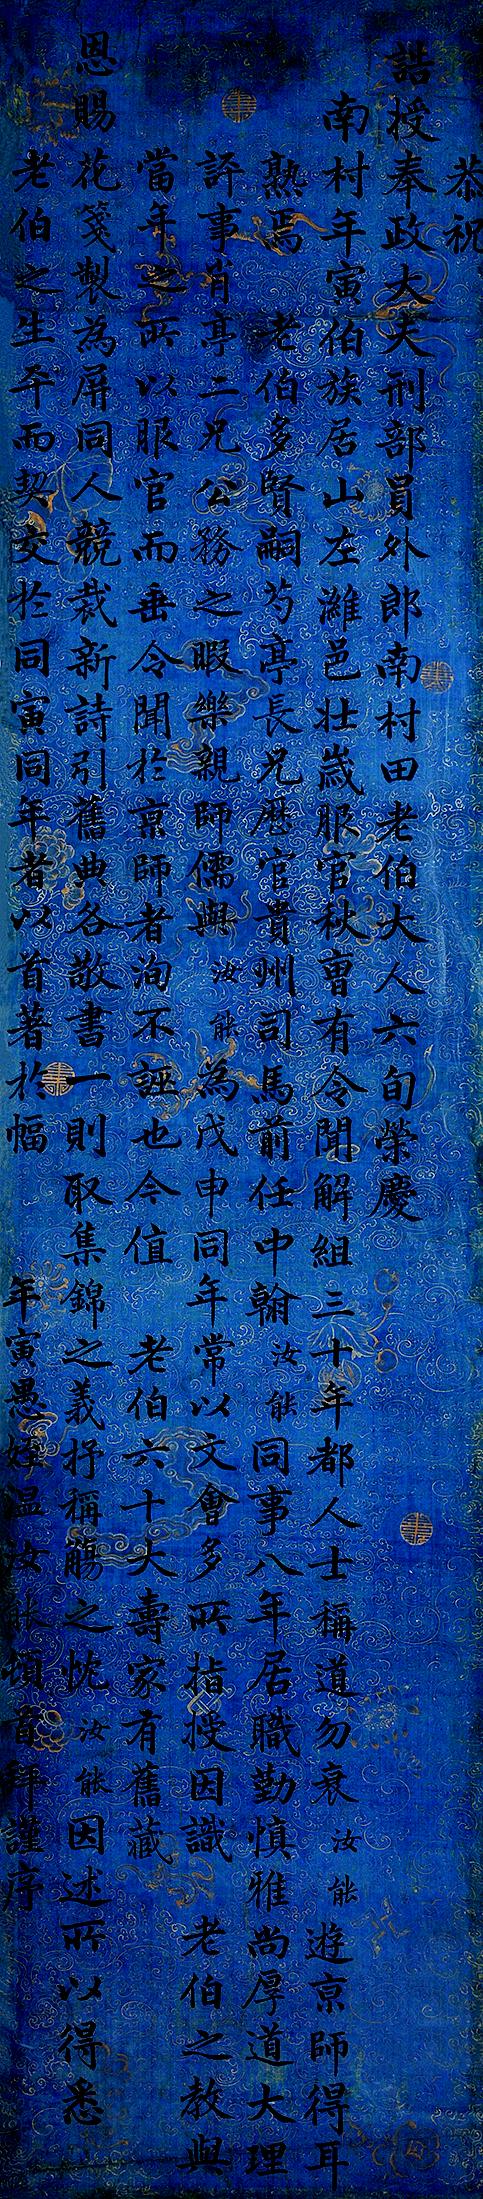 恭祝
誥授奉政大夫刑部員外郎南村田老伯大人六旬榮慶
南村年寅伯族居山左濰邑壯歲服官秋曹有令聞解組三十年都人士稱道勿衰汝能遊京師得耳
熟焉 老伯多賢嗣芍亭長兄歷官貴州司馬前任中翰汝能同事八年居職勤慎雅尚厚道大理
評事肖亭二兄公務之暇樂親師儒與汝能為戊申同年常以文會多所指授因識 老伯之教與
當年之所以服官而垂令聞於京師者洵不誣也今值 老伯六十大壽家有舊藏
恩賜花箋製為屏同人競裁新詩引舊典各敬書一則取集錦之義抒稱觴之忱汝能因述所以得悉
老伯之生平而契交於同寅同年者以首著於幅 年寅愚姪溫汝能頓首拜謹序